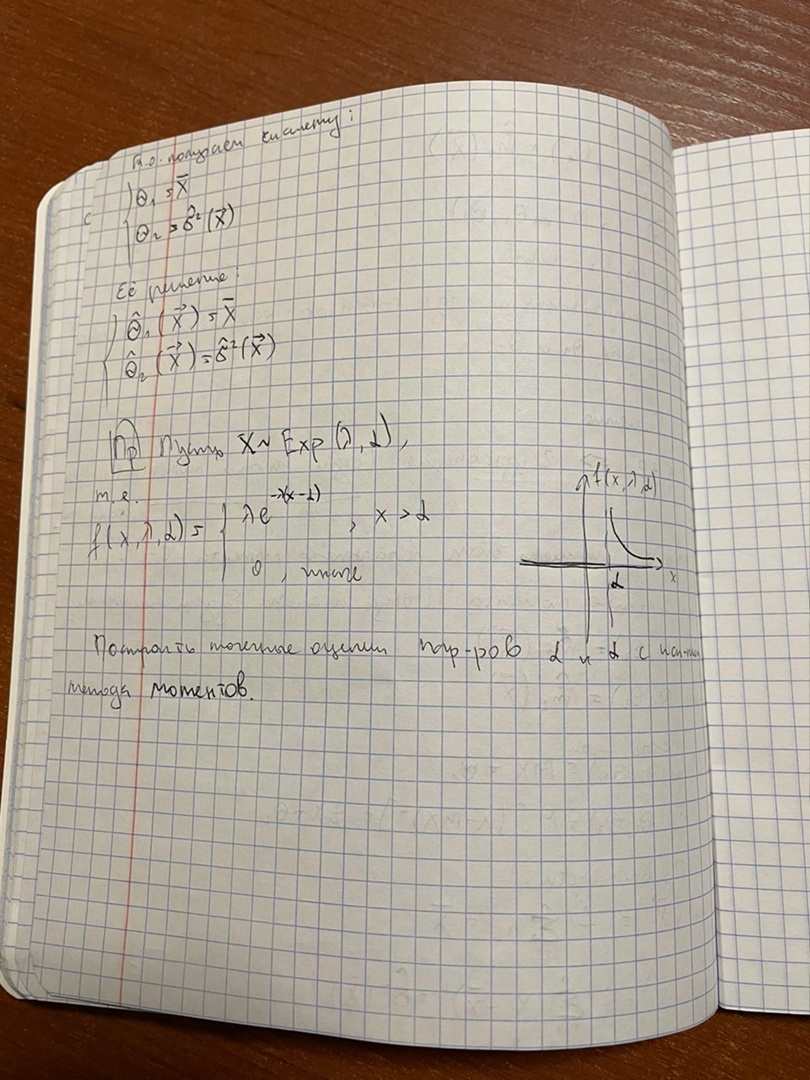 Т.о. получаем систему:
{ θ₁ = X̄
θ₂ = σ̂²(X⃗)
Её решение:
{ θ̂₁(X⃗) = X̄
θ̂₂(X⃗) = σ̂²(X⃗)
Пр Пусть X ~ Exp(λ, α),
т.е.
f(x, λ, α) = { λe^{-λ(x-α)}, x > α
0, иначе
f(x, λ, α)
α
x
Построить точечные оценки пар-ров α и α с
метода моментов.